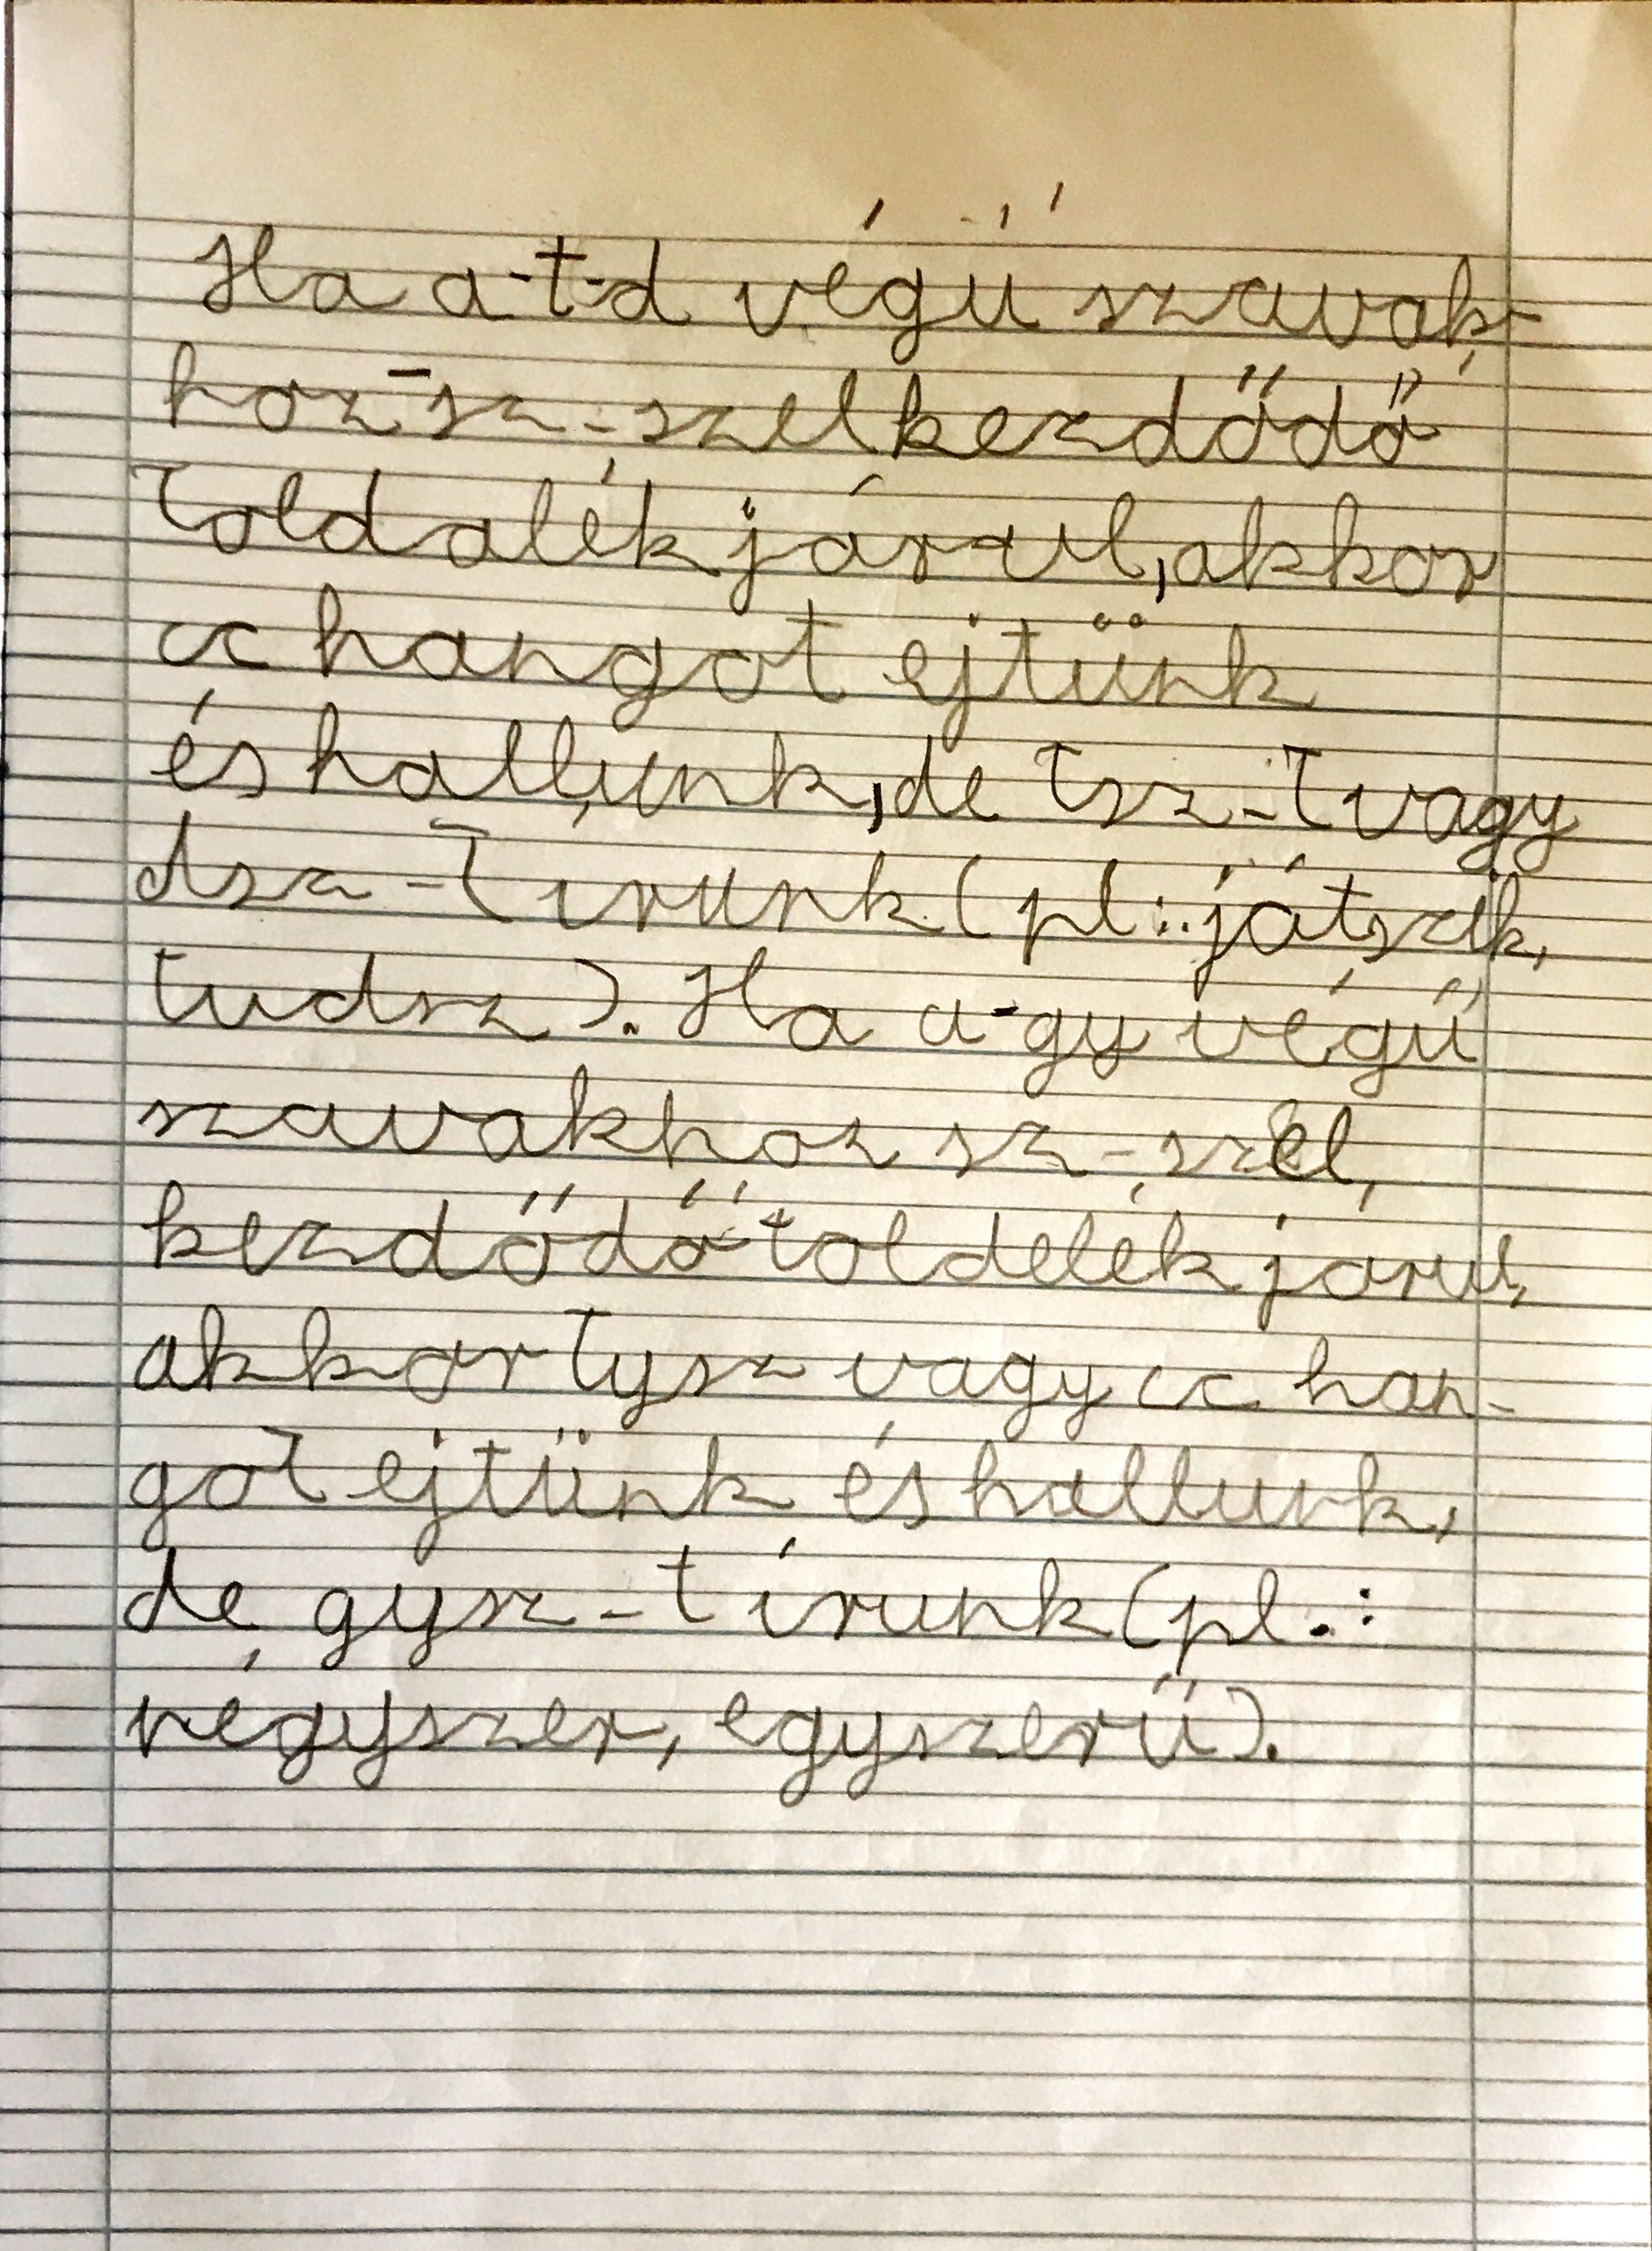 Ha a -t -d végű szavak-
hoz -sz-szel kezdődő
toldalék járul, akkor
cc hangot ejtünk
és hallunk, de tsz-t vagy
dsz-t írunk (pl.: játszik,
tudsz). Ha a -gy végű
szavakhoz sz-szel,
kezdődő toldelék járul,
akkor tysz vagy cc han-
got ejtünk és hallunk,
de gysz-t írunk (pl.:
négyszer, egyszerű).